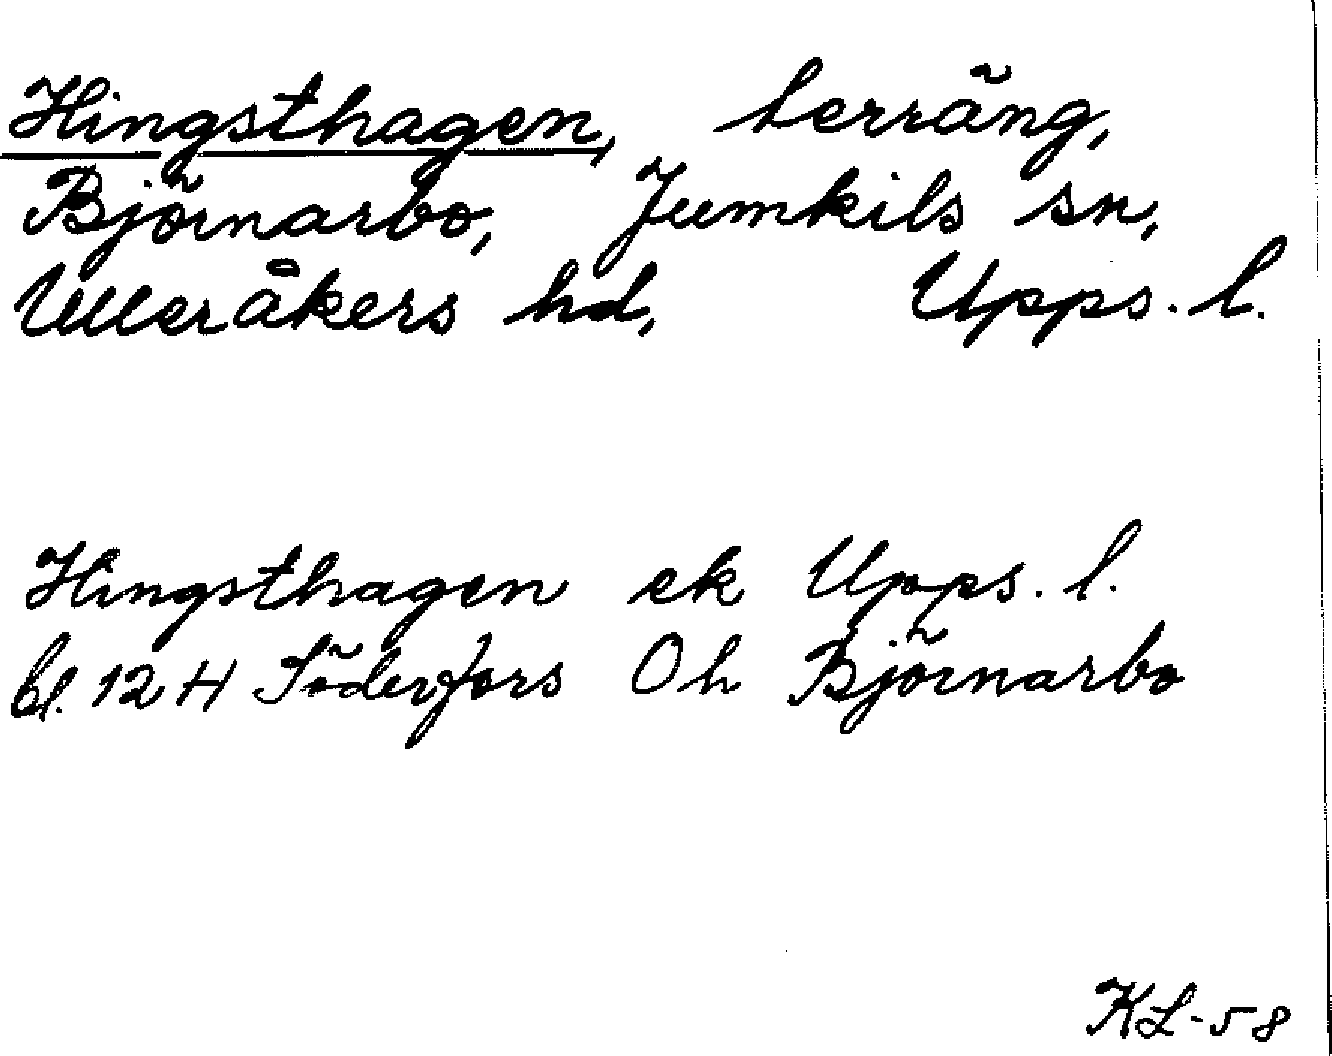 Hingsthagen, terräng,
Björnarbo, Jumkils sn,
Ulleråkers hd, Upps. l.
Hingsthagen ek Upps. l.
bl. 12 H Söderfors Oh Björnarbo
KL-58